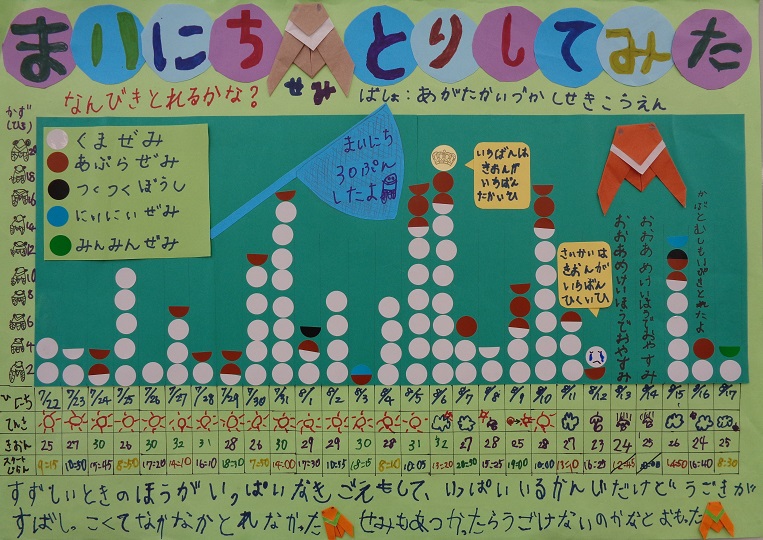 まいにちとりしてみた
せみ
なんびきとれるかな？
ばしょ：あがたかいづかしせきこうえん
かず
(ひき)
20
18
16
14
12
10
8
6
4
2
くまぜみ
あぶらぜみ
つくつくぼうし
にいにいぜみ
みんみんぜみ
まいにち
30ぷん
したよ
いちばんは
きおんが
いちばん
たかいひ
さいかいは
きおんが
いちばん
ひくいひ
おおあめけいほうでおやすみ
おおあめけいほうでおやすみ
かぶとむしもいびきとれたよ
ひにち 7/22 7/23 7/24 7/25 7/26 7/27 7/28 7/29 7/30 7/31 8/1 8/2 8/3 8/4 8/5 8/6 8/7 8/8 8/9 8/10 8/11 8/12 8/13 8/14 8/15 8/16 8/17
てんき
きおん 25 27 30 26 30 32 31 28 26 30 29 29 30 28 31 32 27 28 25 28 27 23 24 25 26 24 25
スタートじかん 9:15 10:50 15:45 8:50 17:20 14:10 16:10 18:10 7:50 14:00 17:30 10:55 18:05 8:10 10:05 13:20 20:30 15:25 19:00 10:00 13:10 16:25 12:45 14:50 16:40 8:30
すずしいときのほうがいっぱいなきごえもして、いっぱいいるかんじだけどうごきが
すばしっこくてなかなかとれなかった せみもあつかったらうごけないのかなとおもった